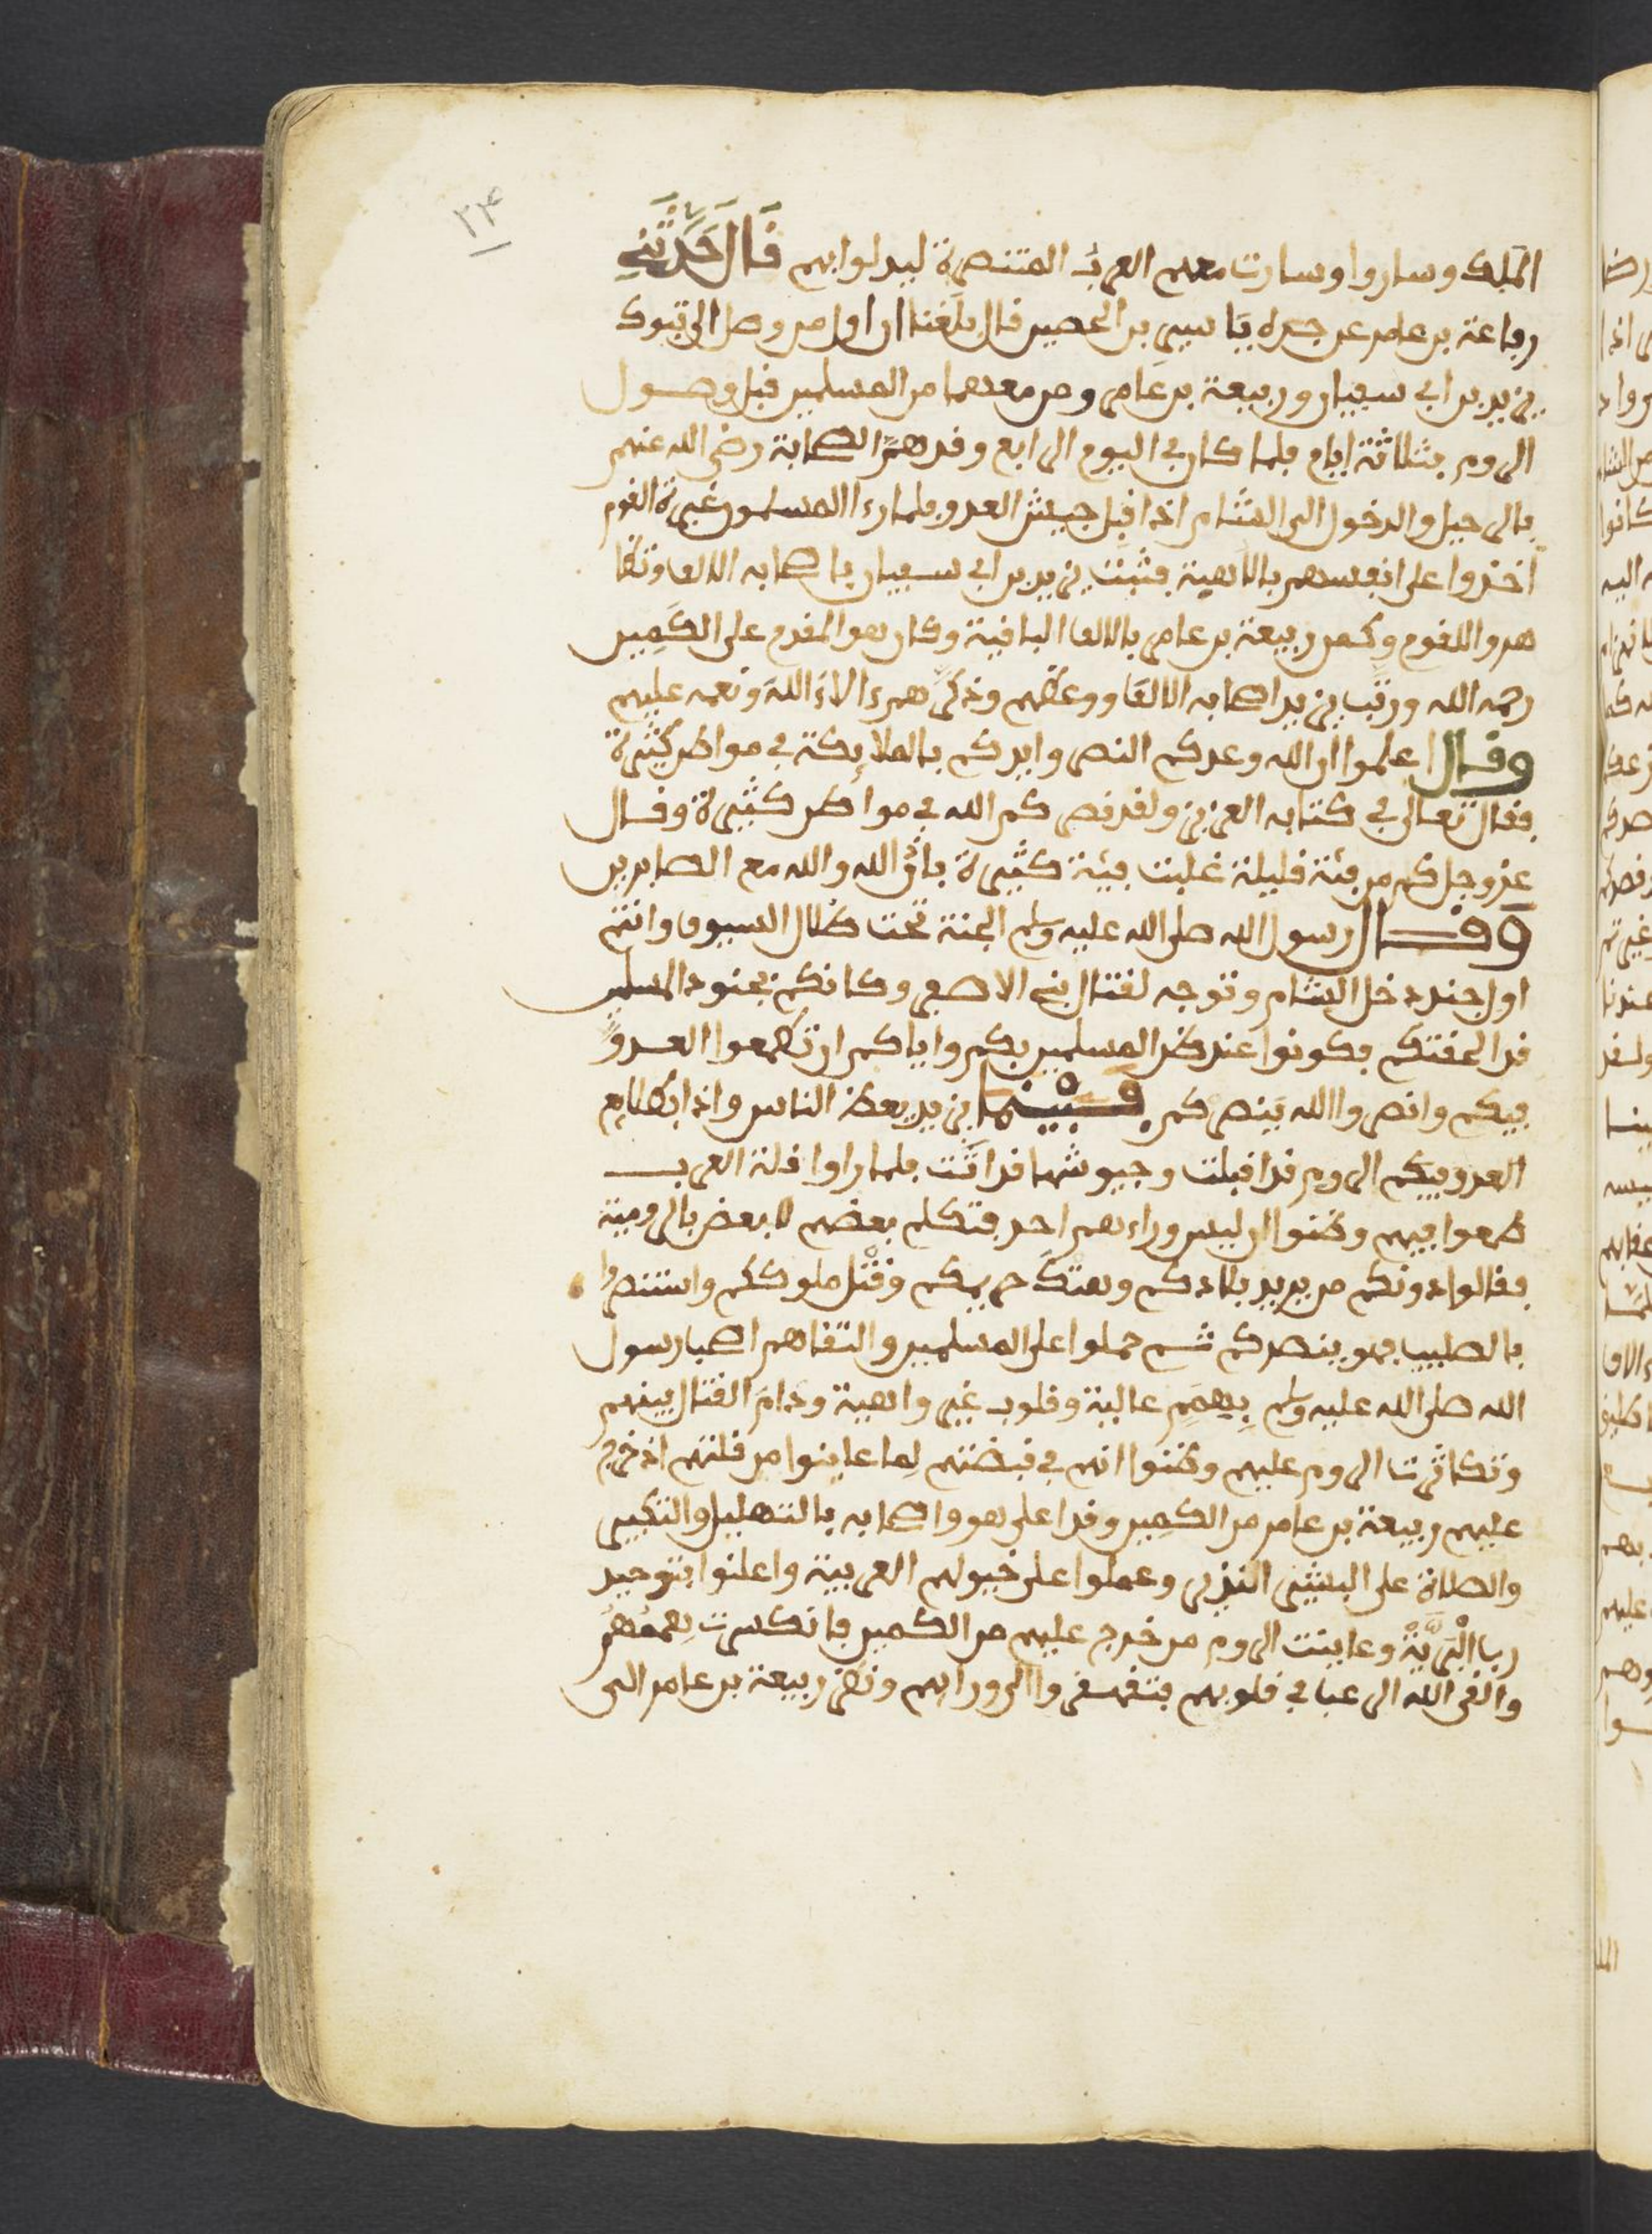 ٢٣
الملك وساروا وسارت معهم العرب المتنصرة ليدلوا بهم قال حدثني
رفاعة بن عامر عن جده ياسر بن الحصين قال بلغنا ان اول من وصل الى تبوك
يزيد بن ابي سفيان وربيعة بن عامر ومن معهما من المسلمين قبل وصول
الروم بثلاثة ايام فلما كان في اليوم الرابع وقد هم الصحابة رضي الله عنهم
بالرحيل والدخول الى الشام اذ اقبل جيش العدو فلما رءا المسلمون غبرة القوم
اخذوا على انفسهم بالاهبة فثبت يزيد بن ابي سفيان باصحابه الالف وتظا
هروا للقوم وكمن ربيعة بن عامر بالالف الباقية وكان هو المقدم على الكمين
رحمه الله ورتب يزيد اصحابه الالف ووعظهم وذكرهم ءالاء الله ونعمه عليهم
وقال اعلموا ان الله وعدكم النصر وايدكم بالملائكة في مواطن كثيرة
فقال تعالى في كتابه العزيز ولقد نصركم الله في مواطن كثيرة وقال
عز وجل كم من فئة قليلة غلبت فئة كثيرة باذن الله والله مع الصابرين
وقال رسول الله صلى الله عليه وسلم الجنة تحت ظلال السيوف وانتم
اول جند دخل الشام وتوجه لقتال بني الاصفر وكانكم بجنود المسلمين
قد الحقتكم فكونوا عند ظن المسلمين بكم واياكم ان تطمعوا العدو
فيكم وانصروا الله ينصركم فبينما يزيد يعظ الناس واذا بطلائع
العدو فيكم الروم قد اقبلت وجيوشها قد اتت فلما راوا قلة العرب
طمعوا فيهم وظنوا ان ليس وراءهم احد فتكلم بعضهم لبعض بالرومية
فقالوا دونكم من يريد بلادكم وهتك حريمكم وقتل ملوككم واستنصروا
بالصليب فهو ينصركم ثم حملوا على المسلمين والتقاهم اصحاب رسول
الله صلى الله عليه وسلم بهمم عالية وقلوب غير واهية ودام القتال بينهم
وتكاثرت الروم عليهم وظنوا انهم في قبضتهم لما عاينوا من قلتهم اذ خرج
عليهم ربيعة بن عامر من الكمين وقد اعلى هو واصحابه بالتهليل والتكبير
والصلاة على البشير النذير وحملوا على خيولهم العربية واعلنوا بتوحيد
رب البرية وعاينت الروم من خرج عليهم من الكمين فانكسرت هممهم
والقى الله الرعب في قلوبهم فتقهقروا الى ورائهم ونظر ربيعة بن عامر الى